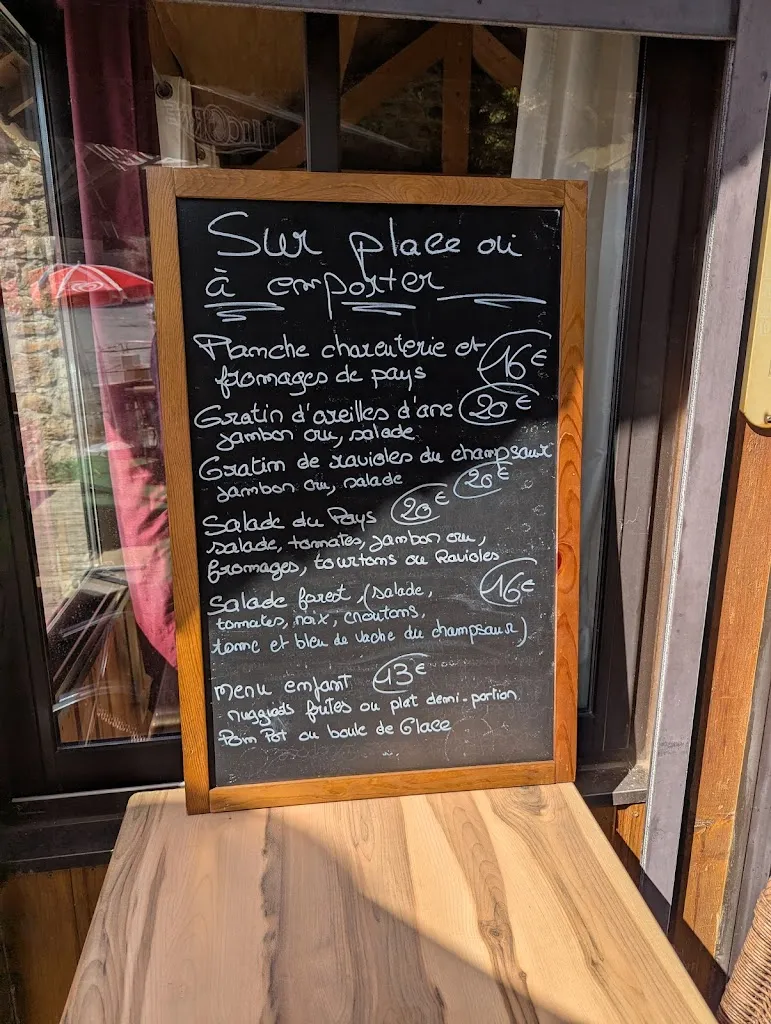 Sur place ou
à emporter
Planche charcuterie et
fromages de pays
16€
Gratin d'oreilles d'ane 20€
jambon cru, salade
Gratin de ravioles du champsaur
jambon cru, salade 20€
Salade du Pays 20€
salade, tomates, jambon cru,
fromages, tourtons ou Ravioles
Salade forest, (salade, 16€
tomates, noix, croutons,
tome et bleu de vache du champsaur)
Menu enfant 13€
nuggiads frites ou plat demi-portion
Pom Pot ou boule de Glace